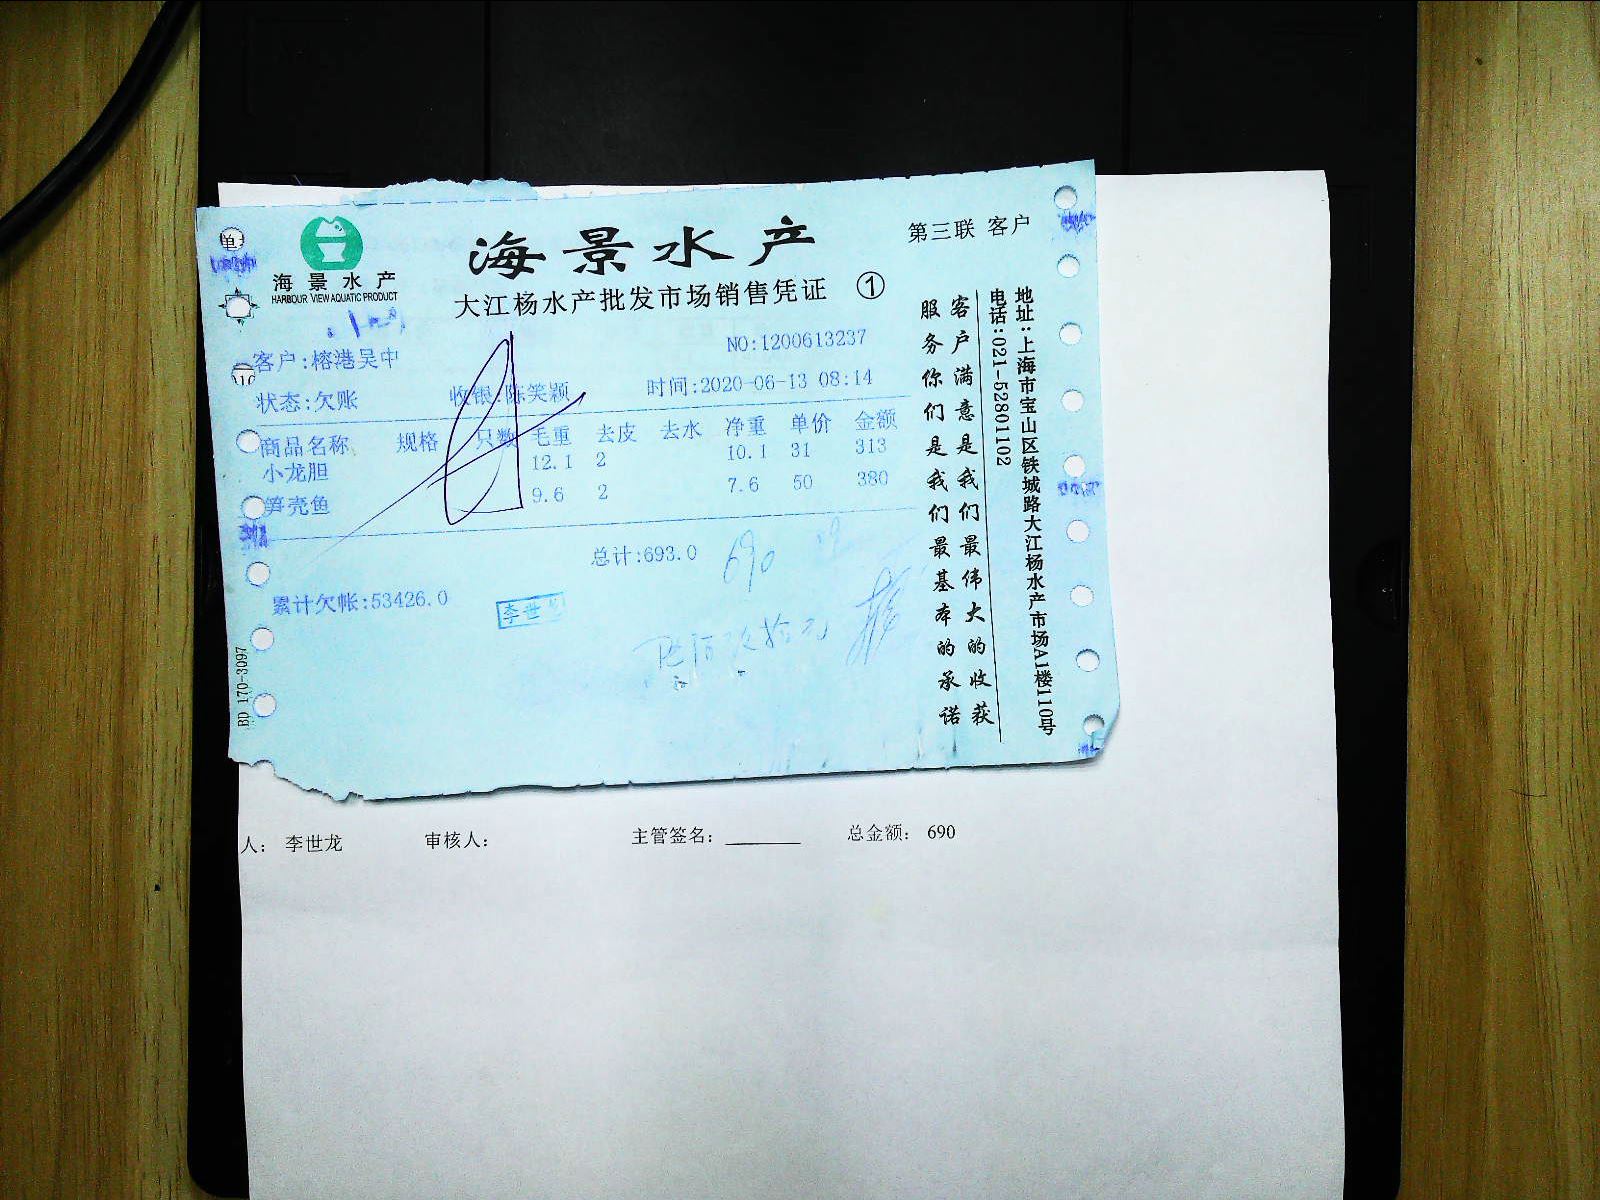 单
海景水产
HARBOUR VIEW AQUATIC PRODUCT
海景水产
大江杨水产批发市场销售凭证 ①
第三联 客户
NO:1200613237
客户:榕港吴中
状态:欠账 收银:陈笑颖 时间:2020-06-13 08:14
商品名称 规格 只数 毛重 去皮 去水 净重 单价 金额
小龙胆 12.1 2 10.1 31 313
笋壳鱼 9.6 2 7.6 50 380
总计:693.0 690
累计欠帐:53426.0
李世龙
BD 170-3097
客户满意是我们最伟大的收获
服务你们是我们最基本的承诺
地址:上海市宝山区铁城路大江杨水产市场A1楼110号
电话:021-52801102
人: 李世龙 审核人: 主管签名: 总金额: 690